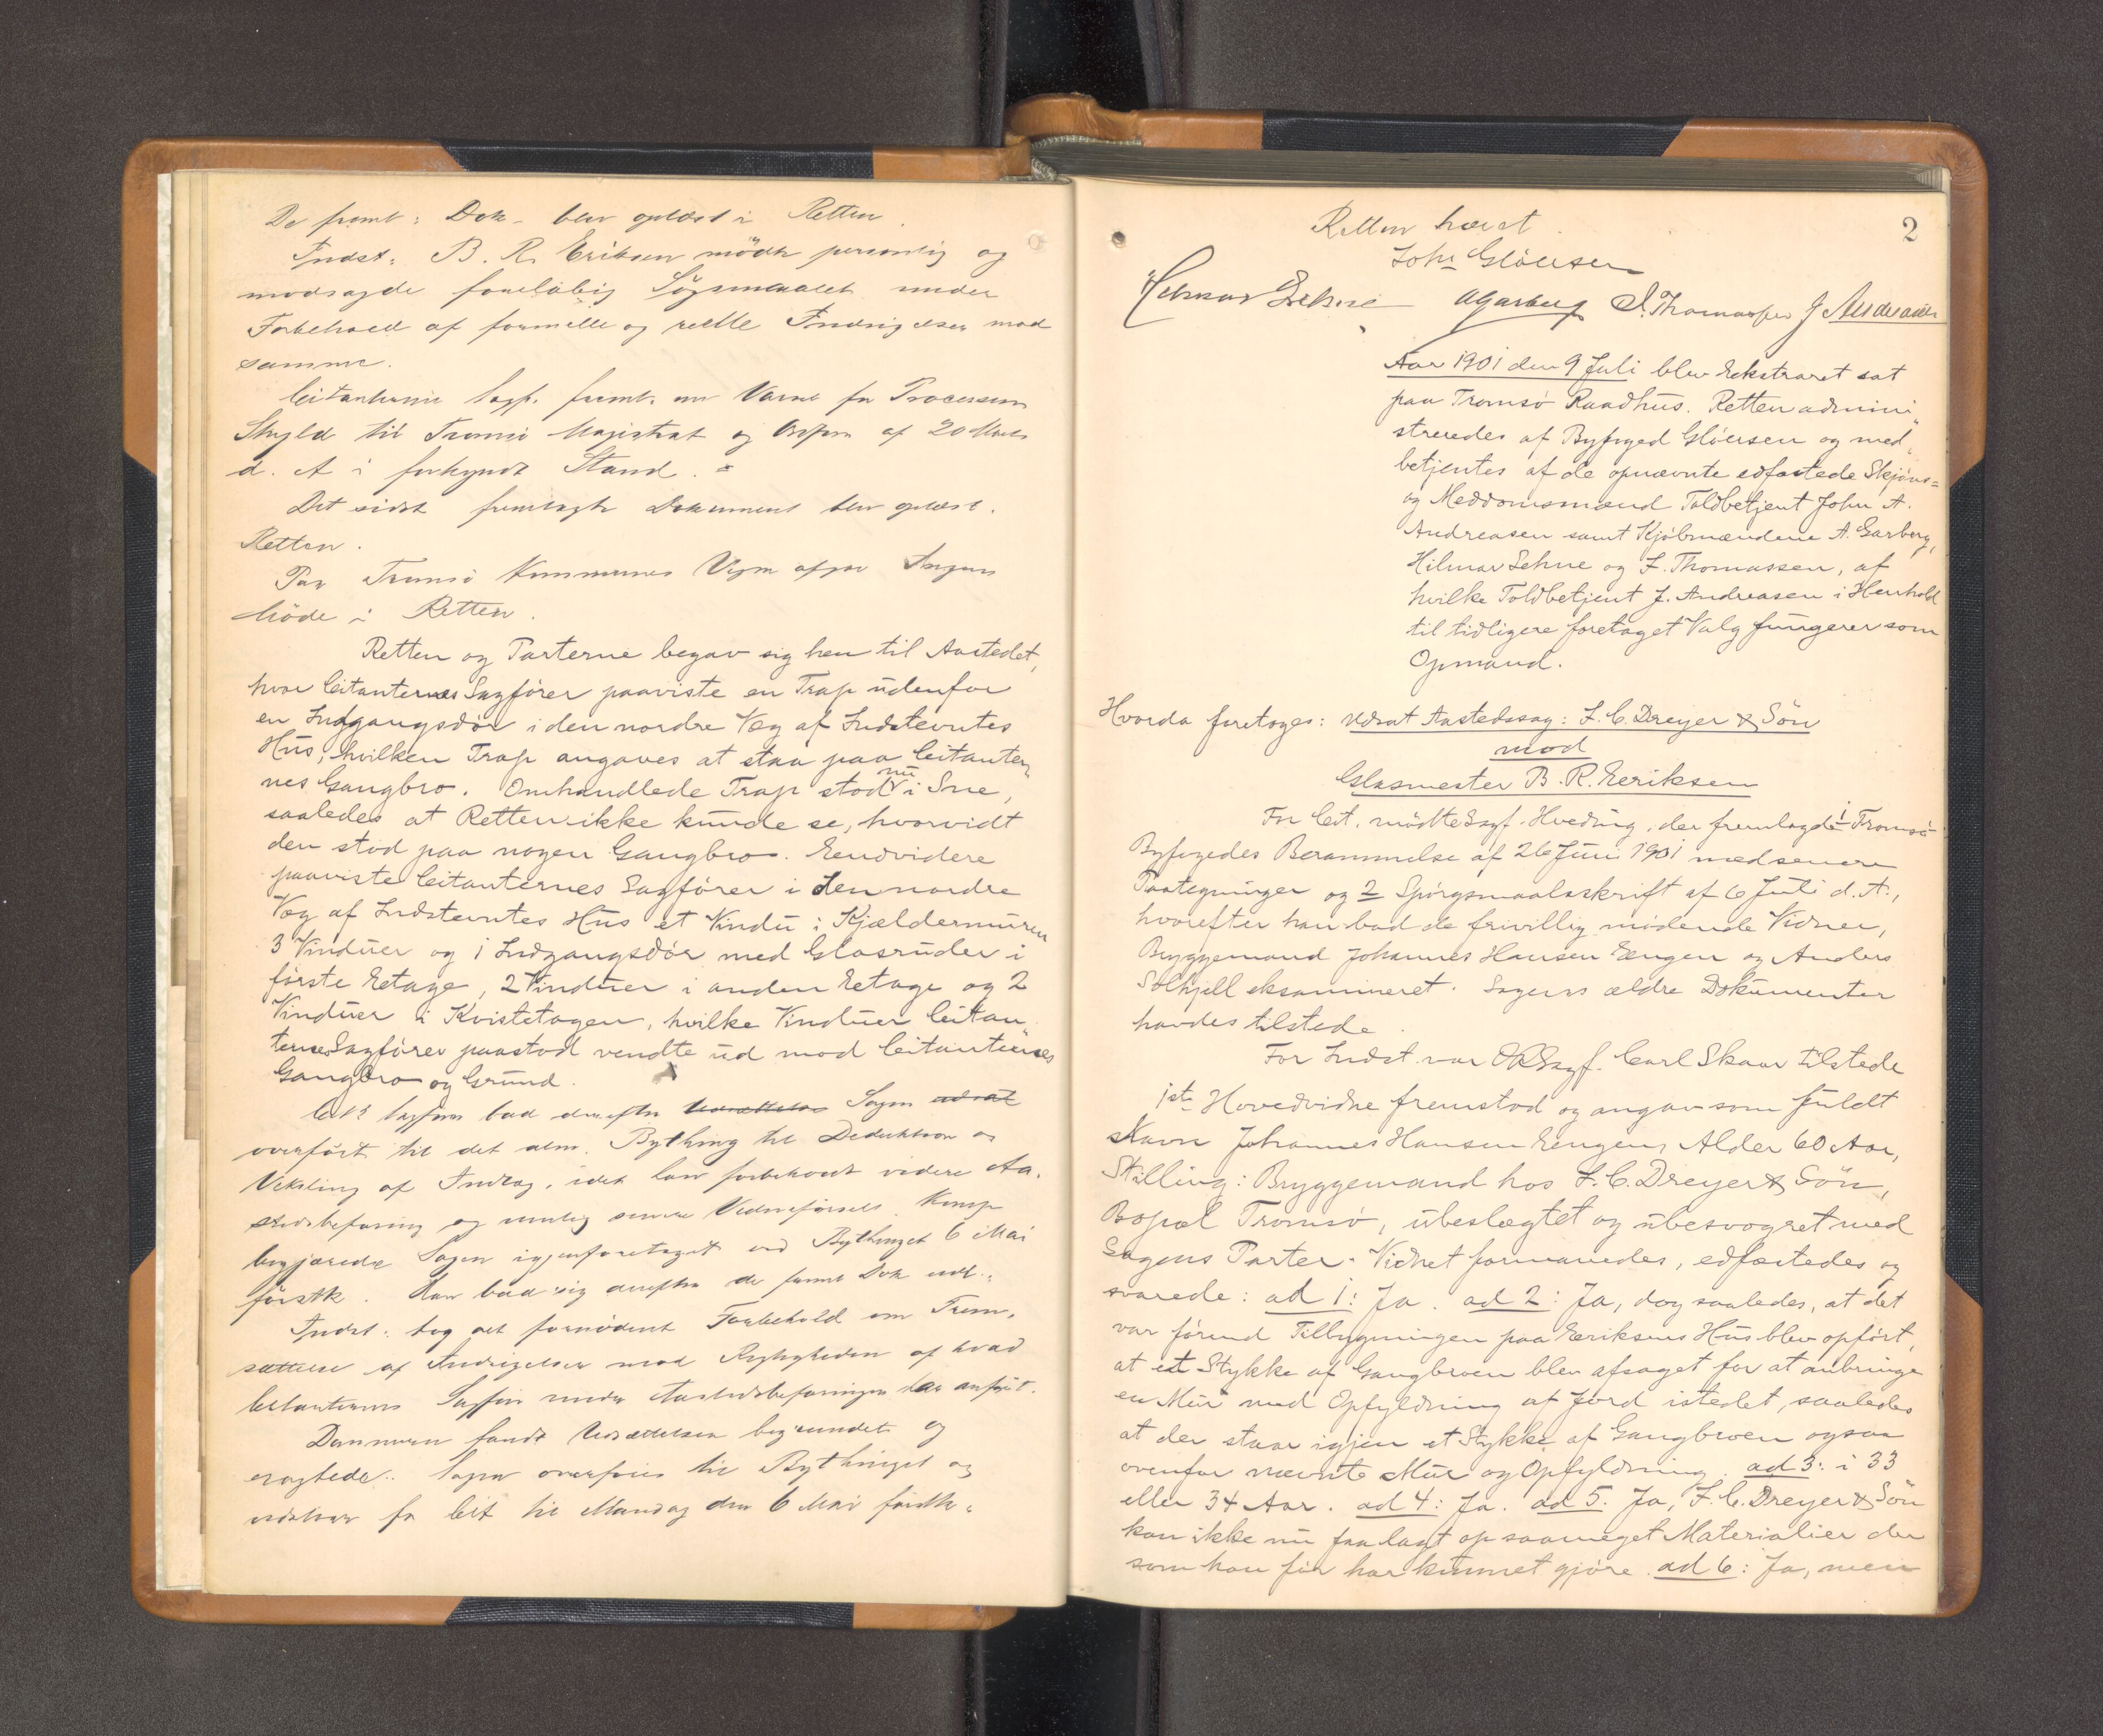 De fremt: Dok. blev oplæst i Retten.
Indst. B. R. Eriksen mødte personlig og
modsagde foreløbig Søgsmaalet under
Forbehold af formelle og reelle Indsigelser mod
samme.
Citanternes Sagf. fremt. en Varsel
til Tromsø Magistrat og af 20 Marts
d. A i forkyndt Stand.
Det sidst fremlagte Dokument blev oplæst.
Retten.
Paa Tromsø Kommunes Vegne Ingen
Møde i Retten.
Retten og Parterne begav sig hen til Aastedet,
hvor Citanternes Sagfører paaviste en Trap udenfor
en Indgangsdør i den nordre Væg af Indstevntes
Hus, hvilken Trap angaves at staa paa Citanter„
nes Gangbro. Omhandlede Trap stod nu i Sne,
saaledes at Retten ikke kunde se, hvorvidt
den stod paa nogen Gangbro. Endvidere
paaviste Citanternes Sagfører i den nordre
Væg af Indstevntes Hus et Vindu i Kjældermuren
3 Vinduer og 1 Indgangsdør med Glasruder i
første Etage, 2 Vinduer i anden Etage og 2
Vinduer i Kvistetagen, hvilke Vinduer Citan„
ternes Sagfører paastod vendte ud mod Citanternes
Gangbro og Grund.
Cits Sagfører bad derefter Udsættelse Sagen udsat
overført til det alm. Bything til Deduktion og
Veksling af Indlæg, idet han forbeholdt videre Aa„
stedsbefaring og senere Vidneførsel. Komp
begjærede Sagen igjenforetaget ved Bythinget 6 Mai
førstk. Han bad sig derefter de fremt Dok udl.
Indst. tog det fornødent Forbehold om Frem„
sættelse af Indsigelser mod Rigtigheden af hvad
Citanternes Sagfører under Aastedsbefaringen har anført.
Dommeren fandt Udsættelsen begrundet og
eragtede: Sagen overføres til Bythinget og
udstaar for Cit til Mandag den 6 Mai førstk.
2
Retten hævet
Johs Gløersen
Hilmar Lehne AGarberg S. Thomassen J Andreasen
Aar 1901 den 9 Juli blev Ekstraret sat
paa Tromsø Raadhus. Retten admini„
streredes af Byfoged Gløersen og med„
betjentes af de opnævnte edfæstede Skjøns=
og Meddomsmænd Toldbetjent John A.
Andreasen samt Kjøbmændene A. Garberg,
Hilmar Lehne og F. Thomassen, af
hvilke Toldbetjent J. Andreasen i Henhold
til tidligere foretaget Valg fungerer som
Opmand.
Hvorda foretoges: udsat Aastedssag: F. C. Dreyer & Søn
mod
Glasmester B. R. Eeriksen
For Cit. mødte Sagf. Hveding, der fremlagde 1 Tromsø
Byfogedes Berammelse af 26 Juni 1901 med senere
Paategninger og 2 Spørgsmaalsskrift af 6 Juli d. A.,
hvorefter han bad de frivillig mødende Vidner,
Bryggemand Johannes Hansen Engen og Anders
Solhjell eksamineret. Sagens ældre Dokumenter
havdes tilstede.
For Indst var ORSagf. Carl Skaar tilstede
1ste Hovedvidne fremstod og angav som fuldt
Navn Johannes Hansen Engen, Alder 60 Aar,
Stilling: Bryggemand hos F. C. Dreyer & Søn,
Bopæl Tromsø, ubeslægtet og ubesvogret med
Sagens Parter. Vidnet formanedes, edfæstedes og
svarede: ad 1: Ja. ad 2: Ja, dog saaledes, at det
var førend Tilbygningen paa Eeriksens Hus blev opført,
at et Stykke af Gangbroen blev afsaget for at anbringe
en Mur med Opfyldning af Jord istedet, saaledes
at der staar igjen et Stykke af Gangbroen ogsaa
ovenfor nævnte Mur og Opfyldning. ad 3: i 33
eller 34 Aar. ad 4: Ja. ad 5. Ja, F. C. Dreyer & Søn
kan ikke nu faa lagt op saameget Materialier der
som han før har kunnet gjøre. ad 6: Ja, men